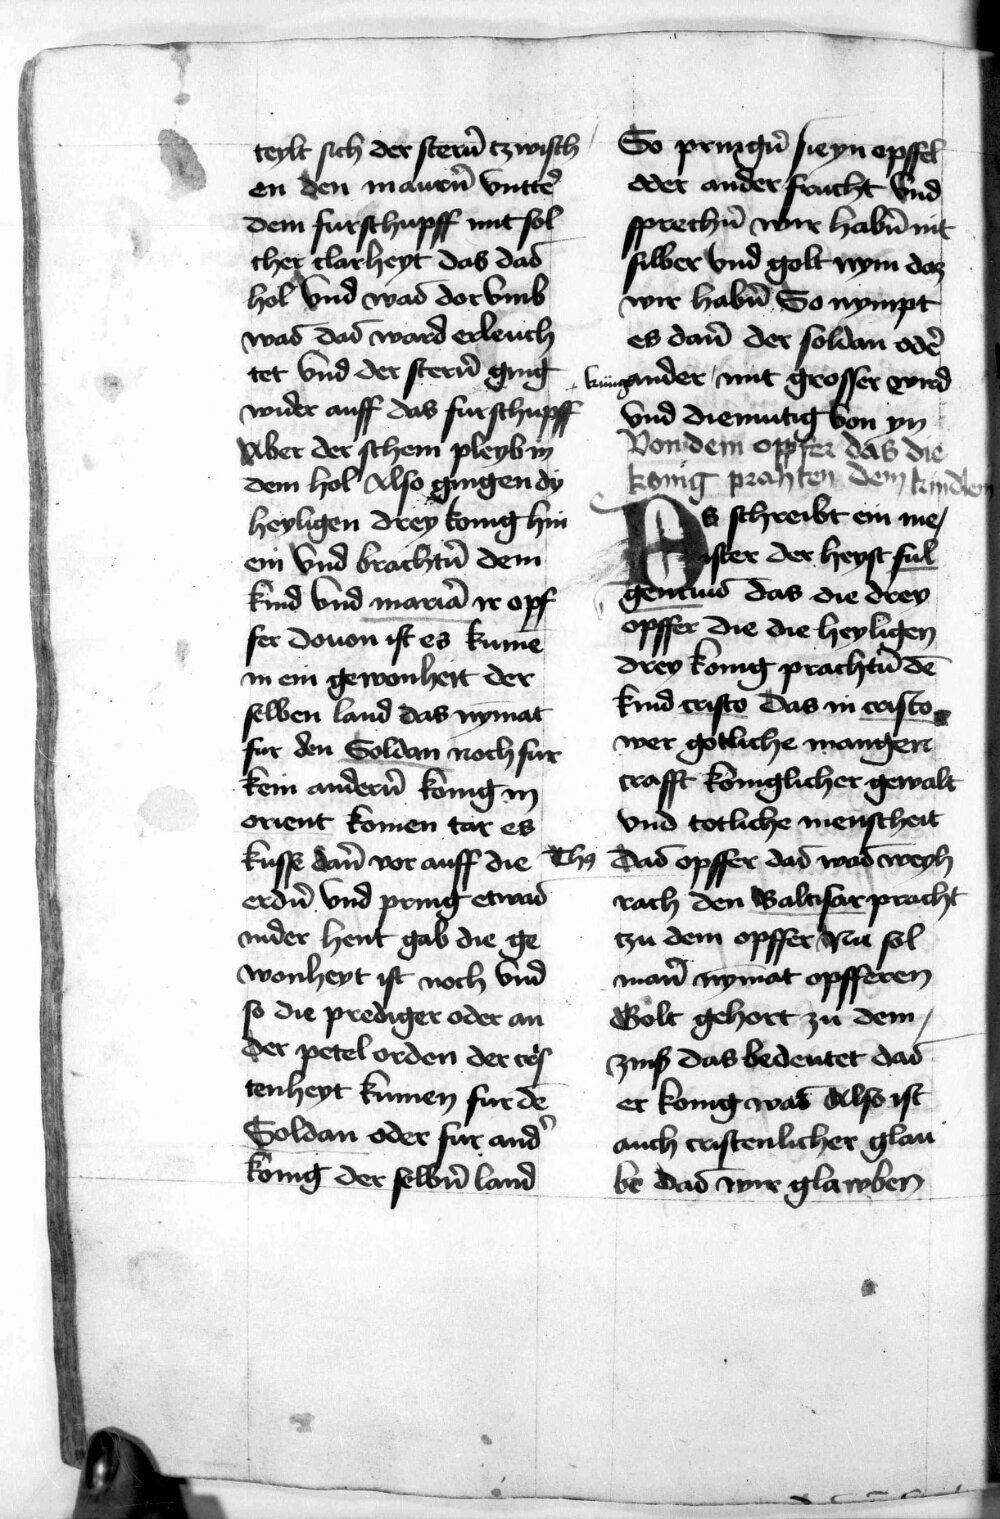 teylt sich der stern̄ tzwisch
en den maurn̄ vntter̄
dem furschupff mit sol
cher clarheyt das daß
hol vnd waß dor vmb
waß daß ward erleuch
tet vnd der stern̄ ging
wider auff das furschupff
Aber der schein pleyb in
dem hol Also gingen dy
heyligen drey konig hin
ein vnd brachtn̄ dem
kind vnd mariā ir opf
fer douon ist es kumē
in ein gewonheit der
selben land das nymāt
fur den Soldan noch fur
kein andern̄ konig in
orient komen tar es
kusse dan̄ vor auff die
erdn̄ vnd pring etwaß
in der hent gab die ge
wonheyt ist noch vnd
so die prediger oder an
der petel orden der cris
tenheyt kumen fur dē
Soldan oder fur and̓
konig der selbn̄ land
So pringn̄ sie yn epffel
oder ander frucht vnd
sprechn̄ wir habn̄ nit
silber vnd golt nym daz
wir habn̄ So nympt
es dan̄ der soldan odē
künig ander mit grosser wird
vnd diemutig von yn
Von dem opffer das die
konig prahten dem kindlein
Es schreibt ein me/
ister der heyst ful
genciuß das die drey
opffer die die heyligen
drey konig prachtn̄ dē
kind cristo das in cristo
wer gotliche mangen
crafft koniglicher gewalt
vnd totliche menscheit
Das opffer daß waß weyh
rach den Baltisar pracht
tzu dem opffer Nu sol
man̄ nymāt opfferen
Golt gehort zu dem /
zinß das bedeutet daß
er konig was Also ist
auch cristenlicher glau
be daß wir glawben